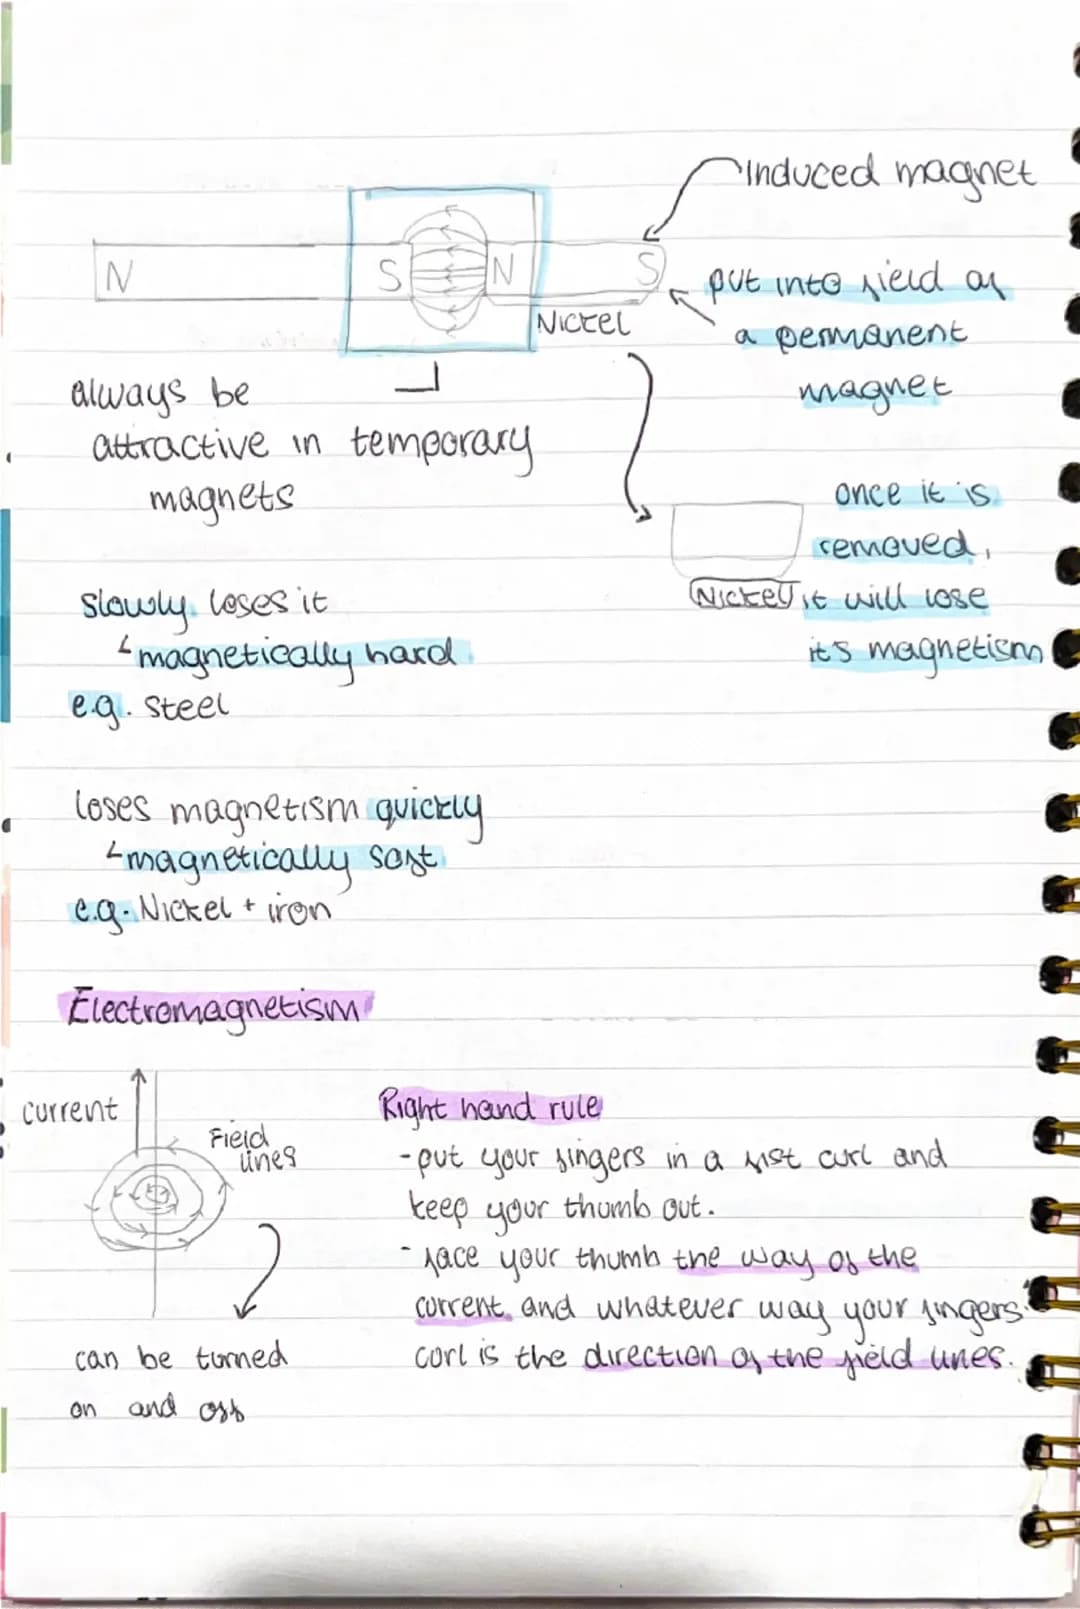 Induced magnet
N S N S
Nickel
put into field of
a permanent
magnet
always be
attractive in temporary
magnets
once it is
removed,
Nickel it will lose
it's magnetism
slowly loses it
magnetically hard
e.g. steel
loses magnetism quickly
magnetically soft
e.g. Nickel + iron
Electromagnetism
current
Field
lines
can be turned
on and off
Right hand rule
- put your fingers in a fist curl and
keep your thumb out.
- face your thumb the way of the
current and whatever way your fingers
curl is the direction of the field lines.